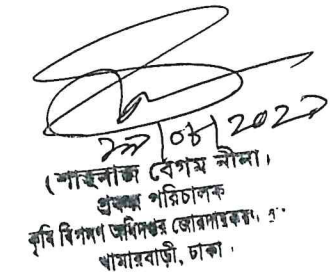 (শাহনাজ বেগম নীনা)
প্রকল্প পরিচালক
কৃষি বিপণন অধিদপ্তর জোরদারকরণ
খামারবাড়ী, ঢাকা।